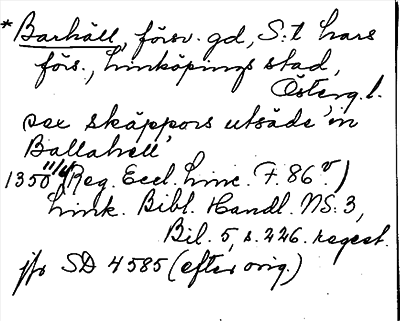 *Barhäll, försv. gd, S:t Lars
förs., Linköpings stad,
Österg.l.
sex skäppors utsäde 'in
Ballahell'
1350 11/4 (Reg. Eccl. Linc. F. 86 v.)
Link. Bibl. Handl. NS. 3,
Bil. 5, s. 226. regest.
jfr SD 4585 (efter orig.)